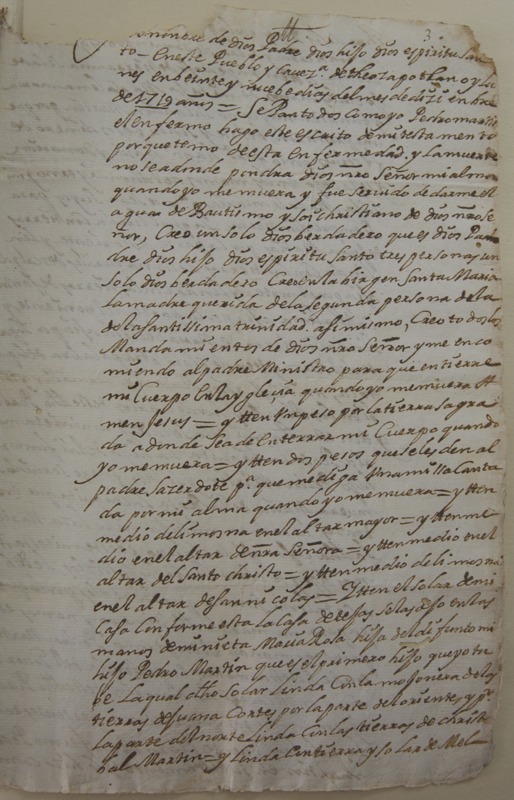 3.
nonbre de dios Padre dios hijo dios espiritu san
to - Eneste Pueblo y Cavez.ª de theozapotlan oy lu
nes en beinte y nuebe dias del mes de dizienbre
de 1719 años = Sepan todos como yo Pedro martin
el enfermo hago este escrito de mi testamento
porque temo de esta enfermedad, y la muerte
no se adonde pondra dios nro Señor mi alma
quando yo me muera y fue seruido de darme el
agua de Bautismo y soi christiano de dios nro se
ñor, Creo un solo dios berdadero que es dios Pa
dre dios hijo dios espiritu Santo tres personas y un
solo dios berdadero Creo en la birgen Santa Maria
la madre querida de la segunda persona de la
de la santissima trinidad. asi mismo, Creo todos los
Mandamientos de dios nro Señor y me enco
miendo al padre Ministro para que entierre
mi Cuerpo en la yglecia quando yo me muera A
men Jesus = ytten un peso por la tierra sagra
da a donde sea de enterrar mi Cuerpo quando
yo me muera = ytten dos pesos que se les den al
padre sazerdote p.ª que me diga una missa Canta
da por mi alma quando yo me muera = ytten
medio de limosna en el altar mayor = ytten me
dio en el altar de nra Señora = ytten medio en el
altar del Santo christo = ytten medio de limosna
en el altar de san nicolas = Ytten el solar de mi
Casa Conforme esta la Casa de texas se la dejo en las
manos de mi nieta Maria Rosa hija del difunto mi
hijo Pedro Martin que es el primero hijo que yo tu
be La qual dho Solar Linda Con la mojonera de las
tierras de Juana Cortes por la parte del oriente y p.r
la parte del norte Linda Con las tierras de christo
bal Martin = y Linda Con tierra y solar de Mel